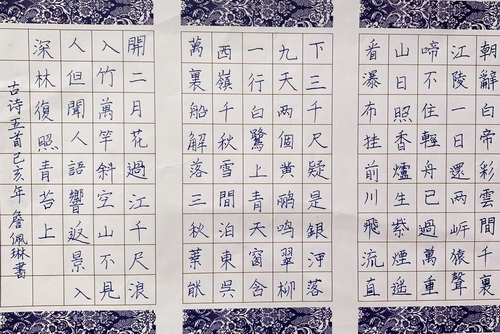 朝辭白帝彩雲間千裏
江陵一日還两岸猿聲
啼不住輕舟已過萬重
山日照香爐生紫煙遥
看瀑布挂前川飛流直
下三千尺疑是銀河落
九天两個黄鹂鸣翠柳
一行白鷺上青天窗含
西嶺千秋雪間泊東吳
萬裏船解落三秋葉能
開二月花過江千尺浪
入竹萬竿斜空山不見
人但聞人語響返景入
深林復照青苔上
古诗五首己亥年 詹佩琳書